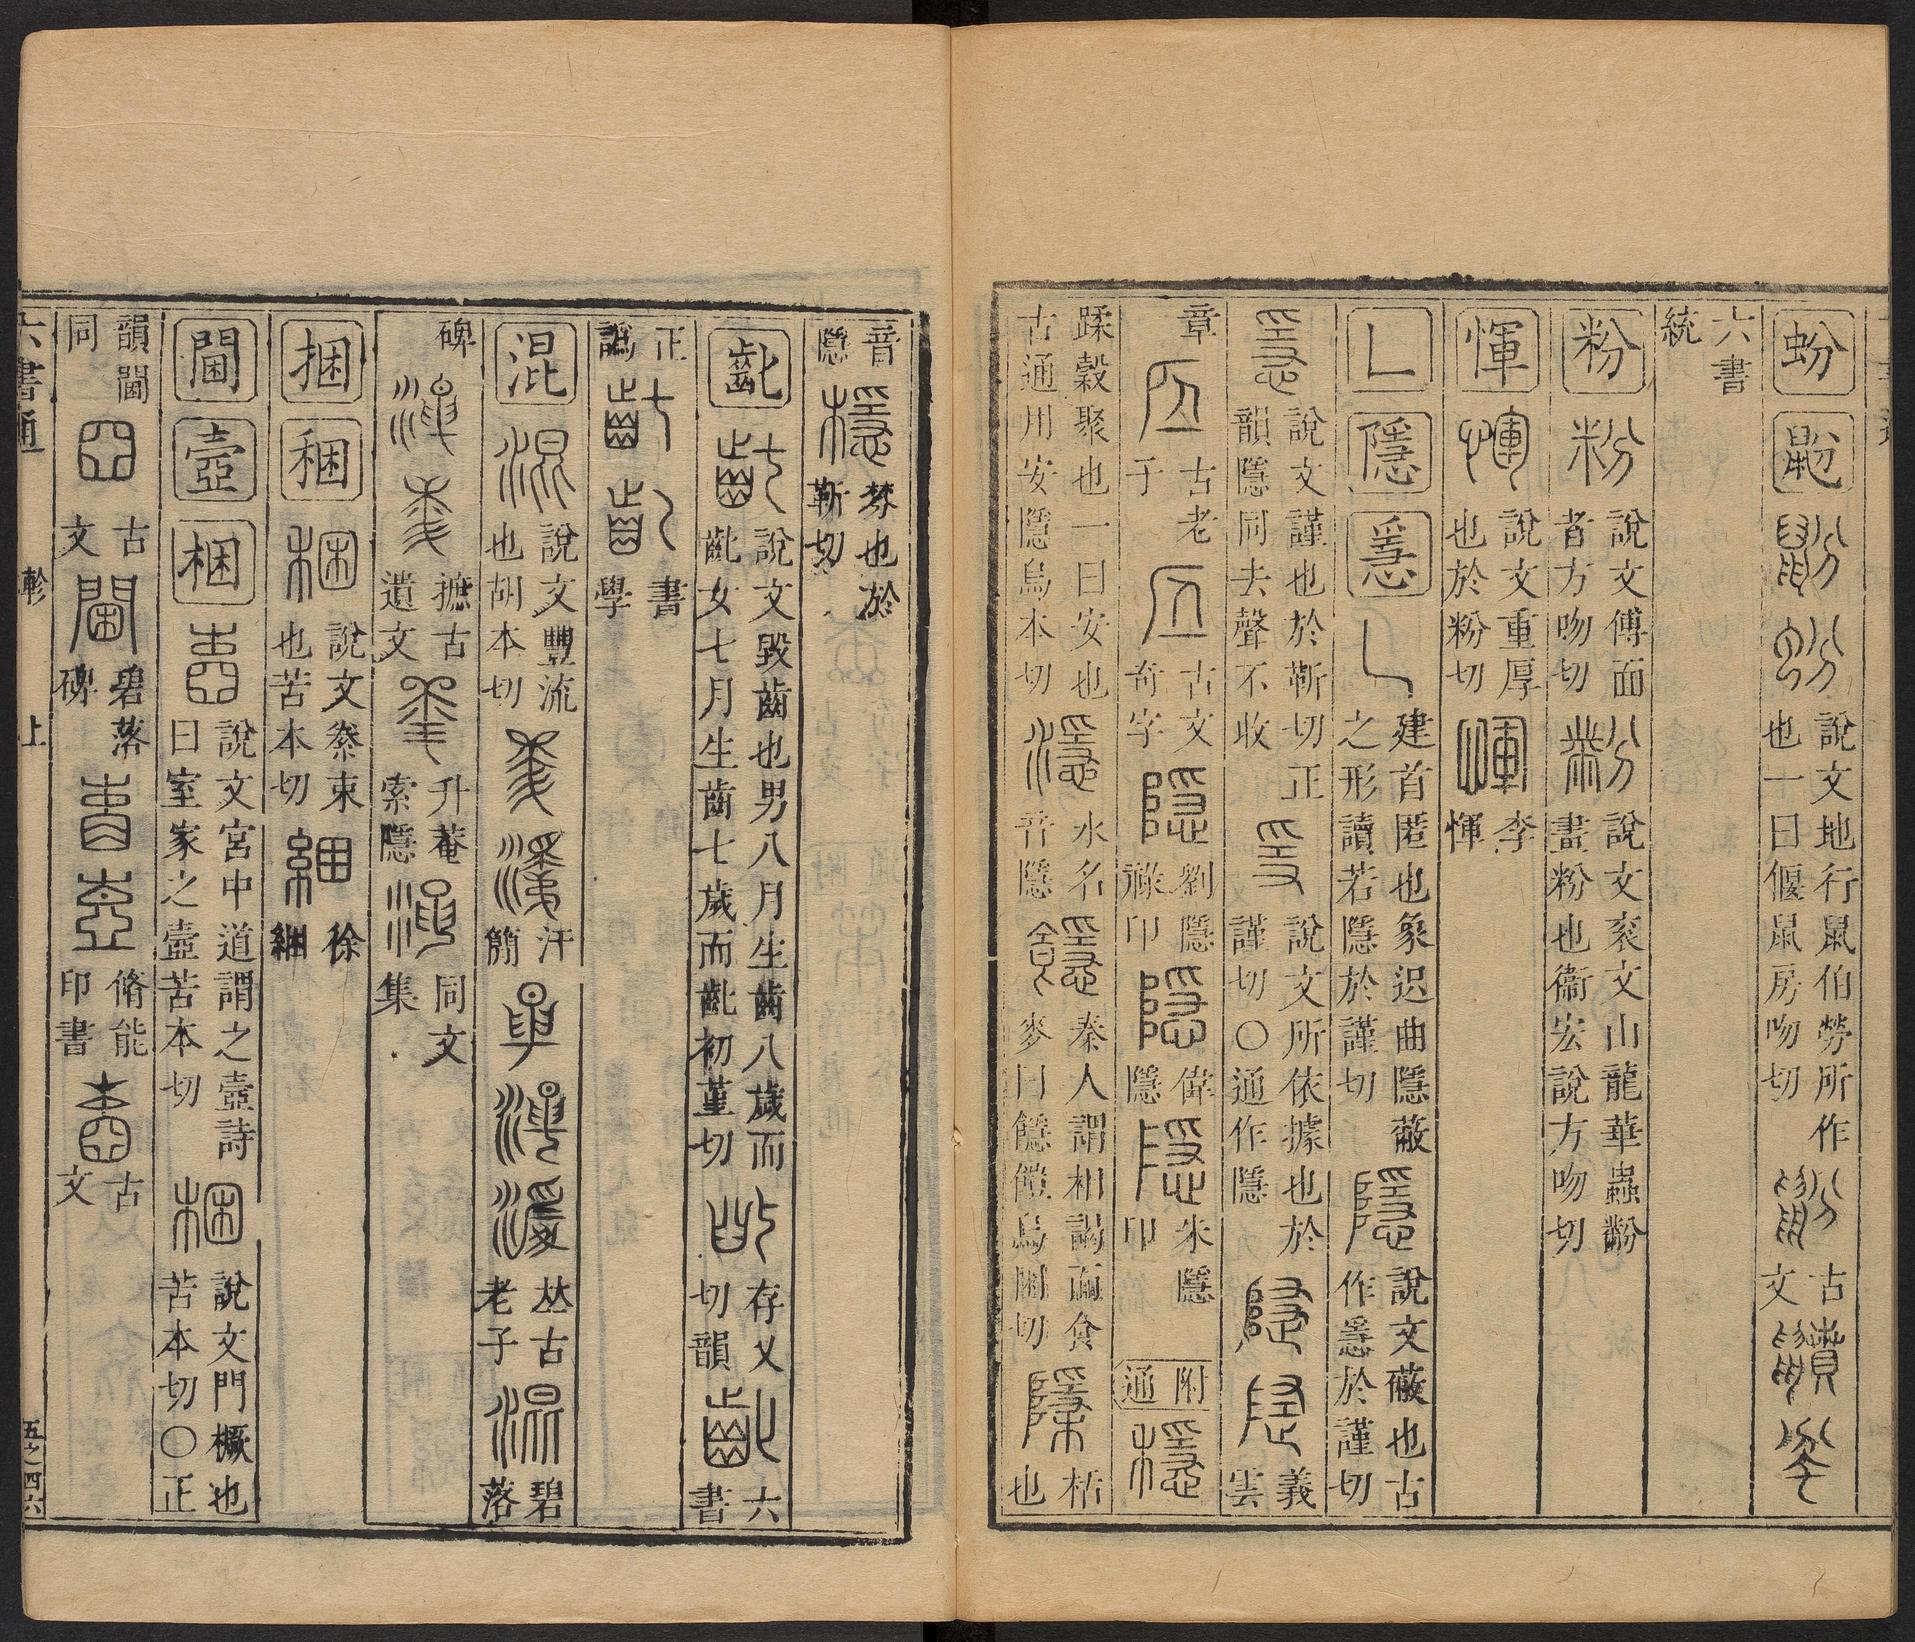 蚡 鼢 說文地行鼠伯勞所作也一曰偃鼠房吻切 古文
六書統
粉 粉 說文傅面者方吻切 黺 說文袞文山龍華蟲黺畫粉也衞宏說方吻切
惲 惲 說文重厚也於粉切 李惲
乚 隱 㥯 乚 建首匿也象迟曲隱蔽之形讀若隱於謹切 隱 說文蔽也古作㥯於謹切
㥯 說文謹也於靳切正韻隱同去聲不收 𤔌 說文所依據也於謹切〇通作隱 義雲
章 古老子 古文奇字 隱 劉隱祿印 隱 隱 米隱印 附通 檼
蹂穀聚也一曰安也古通用安隱烏本切 濦 水名音隱 䭡 秦人謂相謁而食麥曰䭡皚烏困切 栝也
音隱 檼 棼也於靳切
齔 齔 說文毀齒也男八月生齒八歲而齔女七月生齒七歲而齔初堇切 存乂切韻 六書
正譌 書學
混 混 說文豐流也胡本切 汗簡 丛古老子 碧落
碑 摭古遺文 升菴索隱 同文集
捆 稇 稇 說文豢束也苦本切 綑 徐綑
閫 壼 梱 壼 說文宮中道謂之壼詩曰室家之壼苦本切 梱 說文門橛也苦本切〇正
韻閫同 古文 閫 碧落碑 脩能印書 古文
六書通 軫 上 五之四六